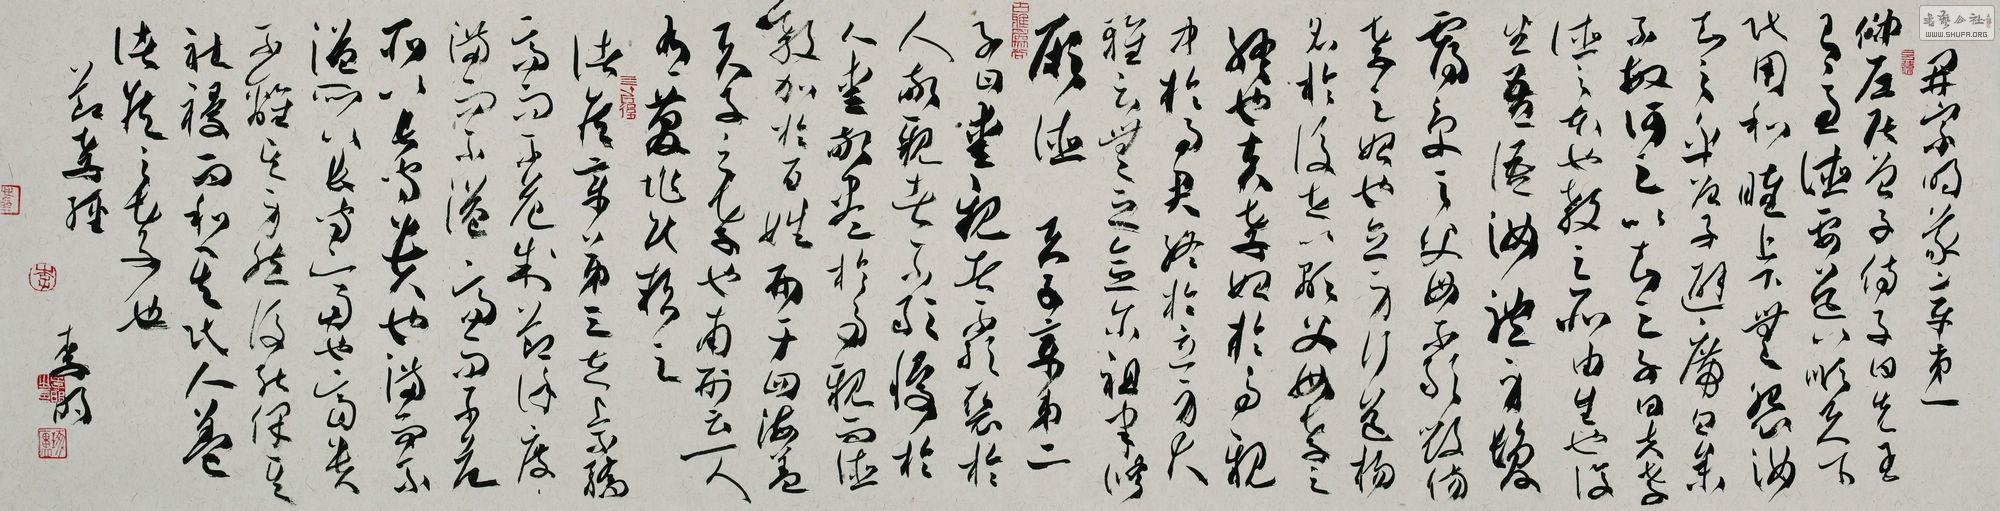 開宗明義章第一
仲尼居曾子侍子曰先王
有至德要道以順天下
民用和睦上下無怨汝
知之乎曾子避席曰參
不敏何足以知之子曰夫孝
德之本也教之所由生也復
坐吾語汝體身髮
膚受之父母不敢毀傷
孝之始也立身行道揚
名於後世以顯父母孝之
終也夫孝始於事親
中於事君終於立身大
雅云無念爾祖聿脩
厥德 天子章第二
子曰愛親者不敢惡於
人敬親者不敢慢於
人愛敬盡於事親而德
教加於百姓刑于四海蓋
天子之孝也甫刑云一人
有慶兆民賴之
諸侯章第三在上不驕
高而不危制節謹度
滿而不溢高而不危
所以長守貴也滿而不
溢所以長守富也富貴
不離其身然後能保其
社稷而和其民人蓋
諸侯之孝也
節孝經
李明
書藝公社
WWW.SHUFA.ORG